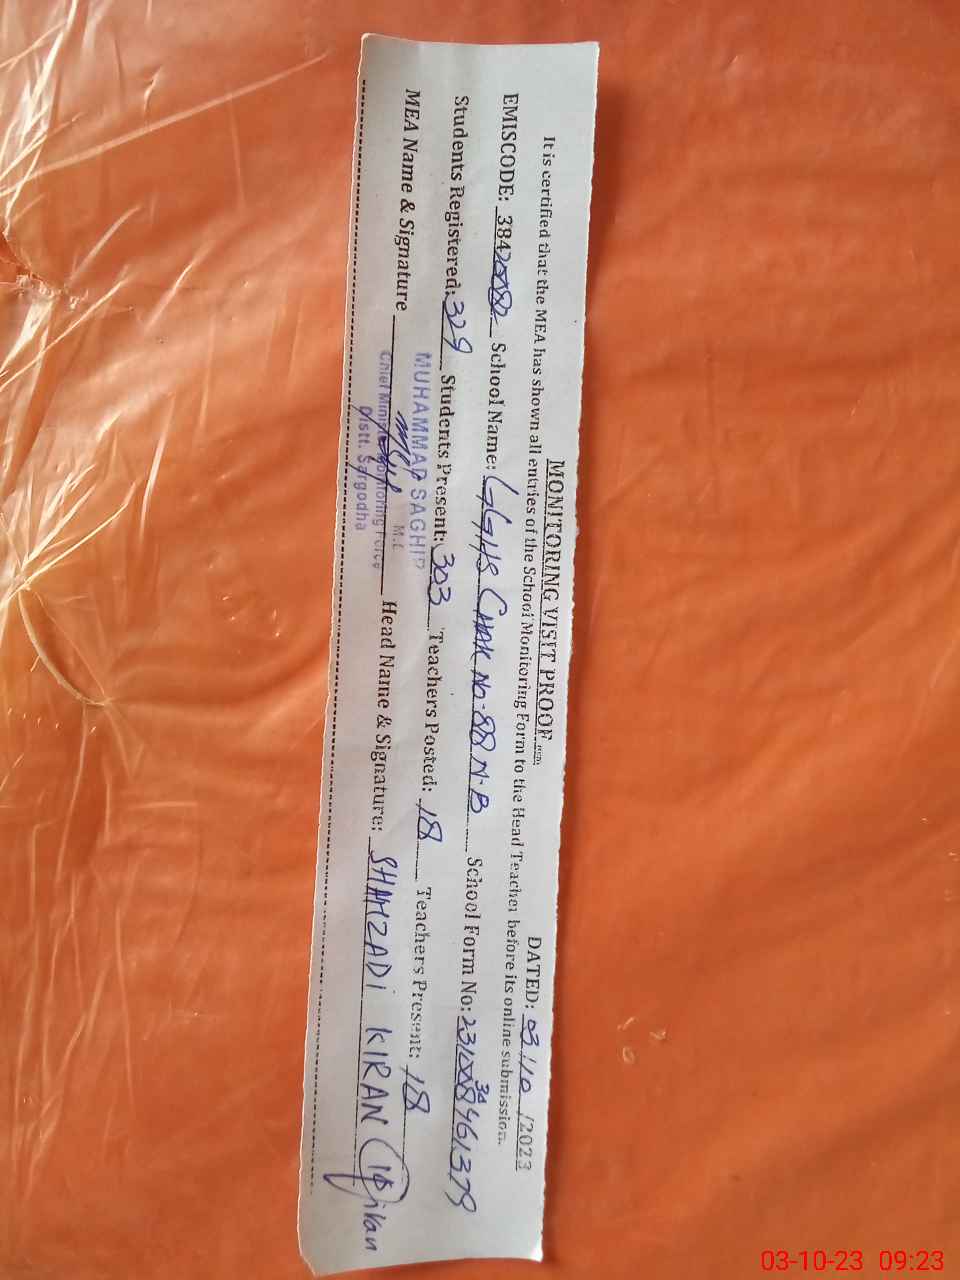 MONITORING VISIT PROOF
DATED: 03/10/2023
It is certified that the MEA has shown all entries of the School Monitoring Form to the Head Teacher before its online submission.
EMISCODE: 38420082 School Name: GGHS CHAK No-88 N.B School Form No:
Students Registered: 329 Students Present: 303 Teachers Posted: 18 Teachers Present: 18
MEA Name & Signature Head Name & Signature: SHAHZADi KIRAN
MUHAMMAD SAGHIR
Distt. Sargodha
03-10-23 09:23